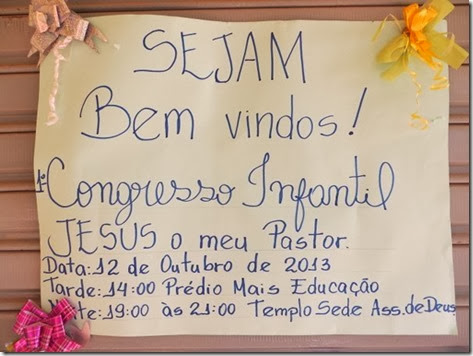 SEJAM
Bem vindos!
1º Congresso Infantil
JESUS o meu Pastor.
Data: 12 de Outubro de 2013
Tarde: 14:00 Prédio Mais Educação
Noite: 19:00 às 21:00 Templo Sede Ass. de Deus